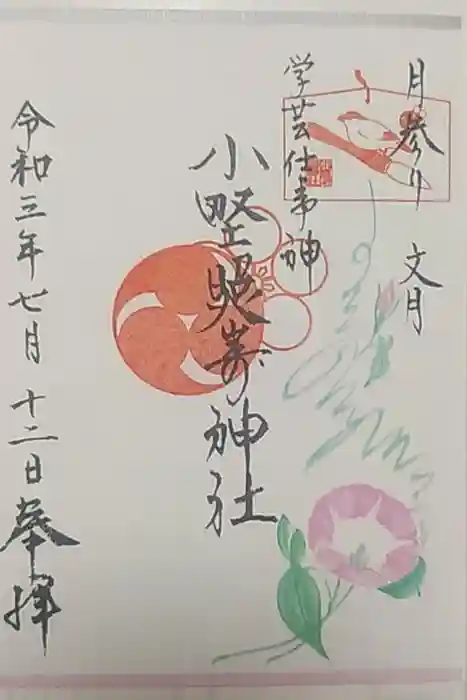 月参り 文月
学芸仕事神
小野照崎神社
令和三年七月十二日
奉拝